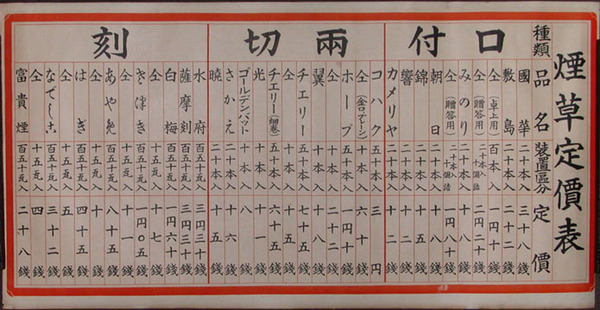 煙草定價表
種類 品名 装置區分 定價
口付
國華 二十本入 三十八錢
敷島 二十本入 二十二錢
仝(卓上用) 百本入 一円十錢
仝(贈答用) 二十本入十個詰 二円二十錢
みのり 二十本入 十八錢
仝(贈答用) 二十本入十個詰 一円八十錢
朝日 二十本入 十八錢
錦 二十本入 錢
響 二十本入 錢
カメリヤ 二十本入 十二錢
兩切
コハク 五十本入 三円
仝(金口プレーン) 十本入 六十錢
ホープ 五十本入 一円十錢
翼 二十本入 十八錢
チエリー 五十本入 七十五錢
仝 十本入 十五錢
チエリー(細巻) 五十本入 六十錢
光 十本入 十一錢
ゴールデンバット 十本入 八錢
さかえ 二十本入 十六錢
曉 二十本入 十五錢
刻
水府 百五十瓦入 三円三十錢
薩摩刻 百五十瓦入 三円三十錢
白梅 百五十瓦入 一円六十錢
仝 十五瓦入 十七錢
さつき 百五十瓦入 一円〇五錢
仝 十五瓦入 十一錢
あやめ 百五十瓦入 八十五錢
仝 十五瓦入 十錢
はぎ 百五十瓦入 四十二錢
仝 十五瓦入 五錢
なでしこ 百五十瓦入 三十二錢
仝 十五瓦入 四錢
富貴煙 百五十瓦入 二十八錢